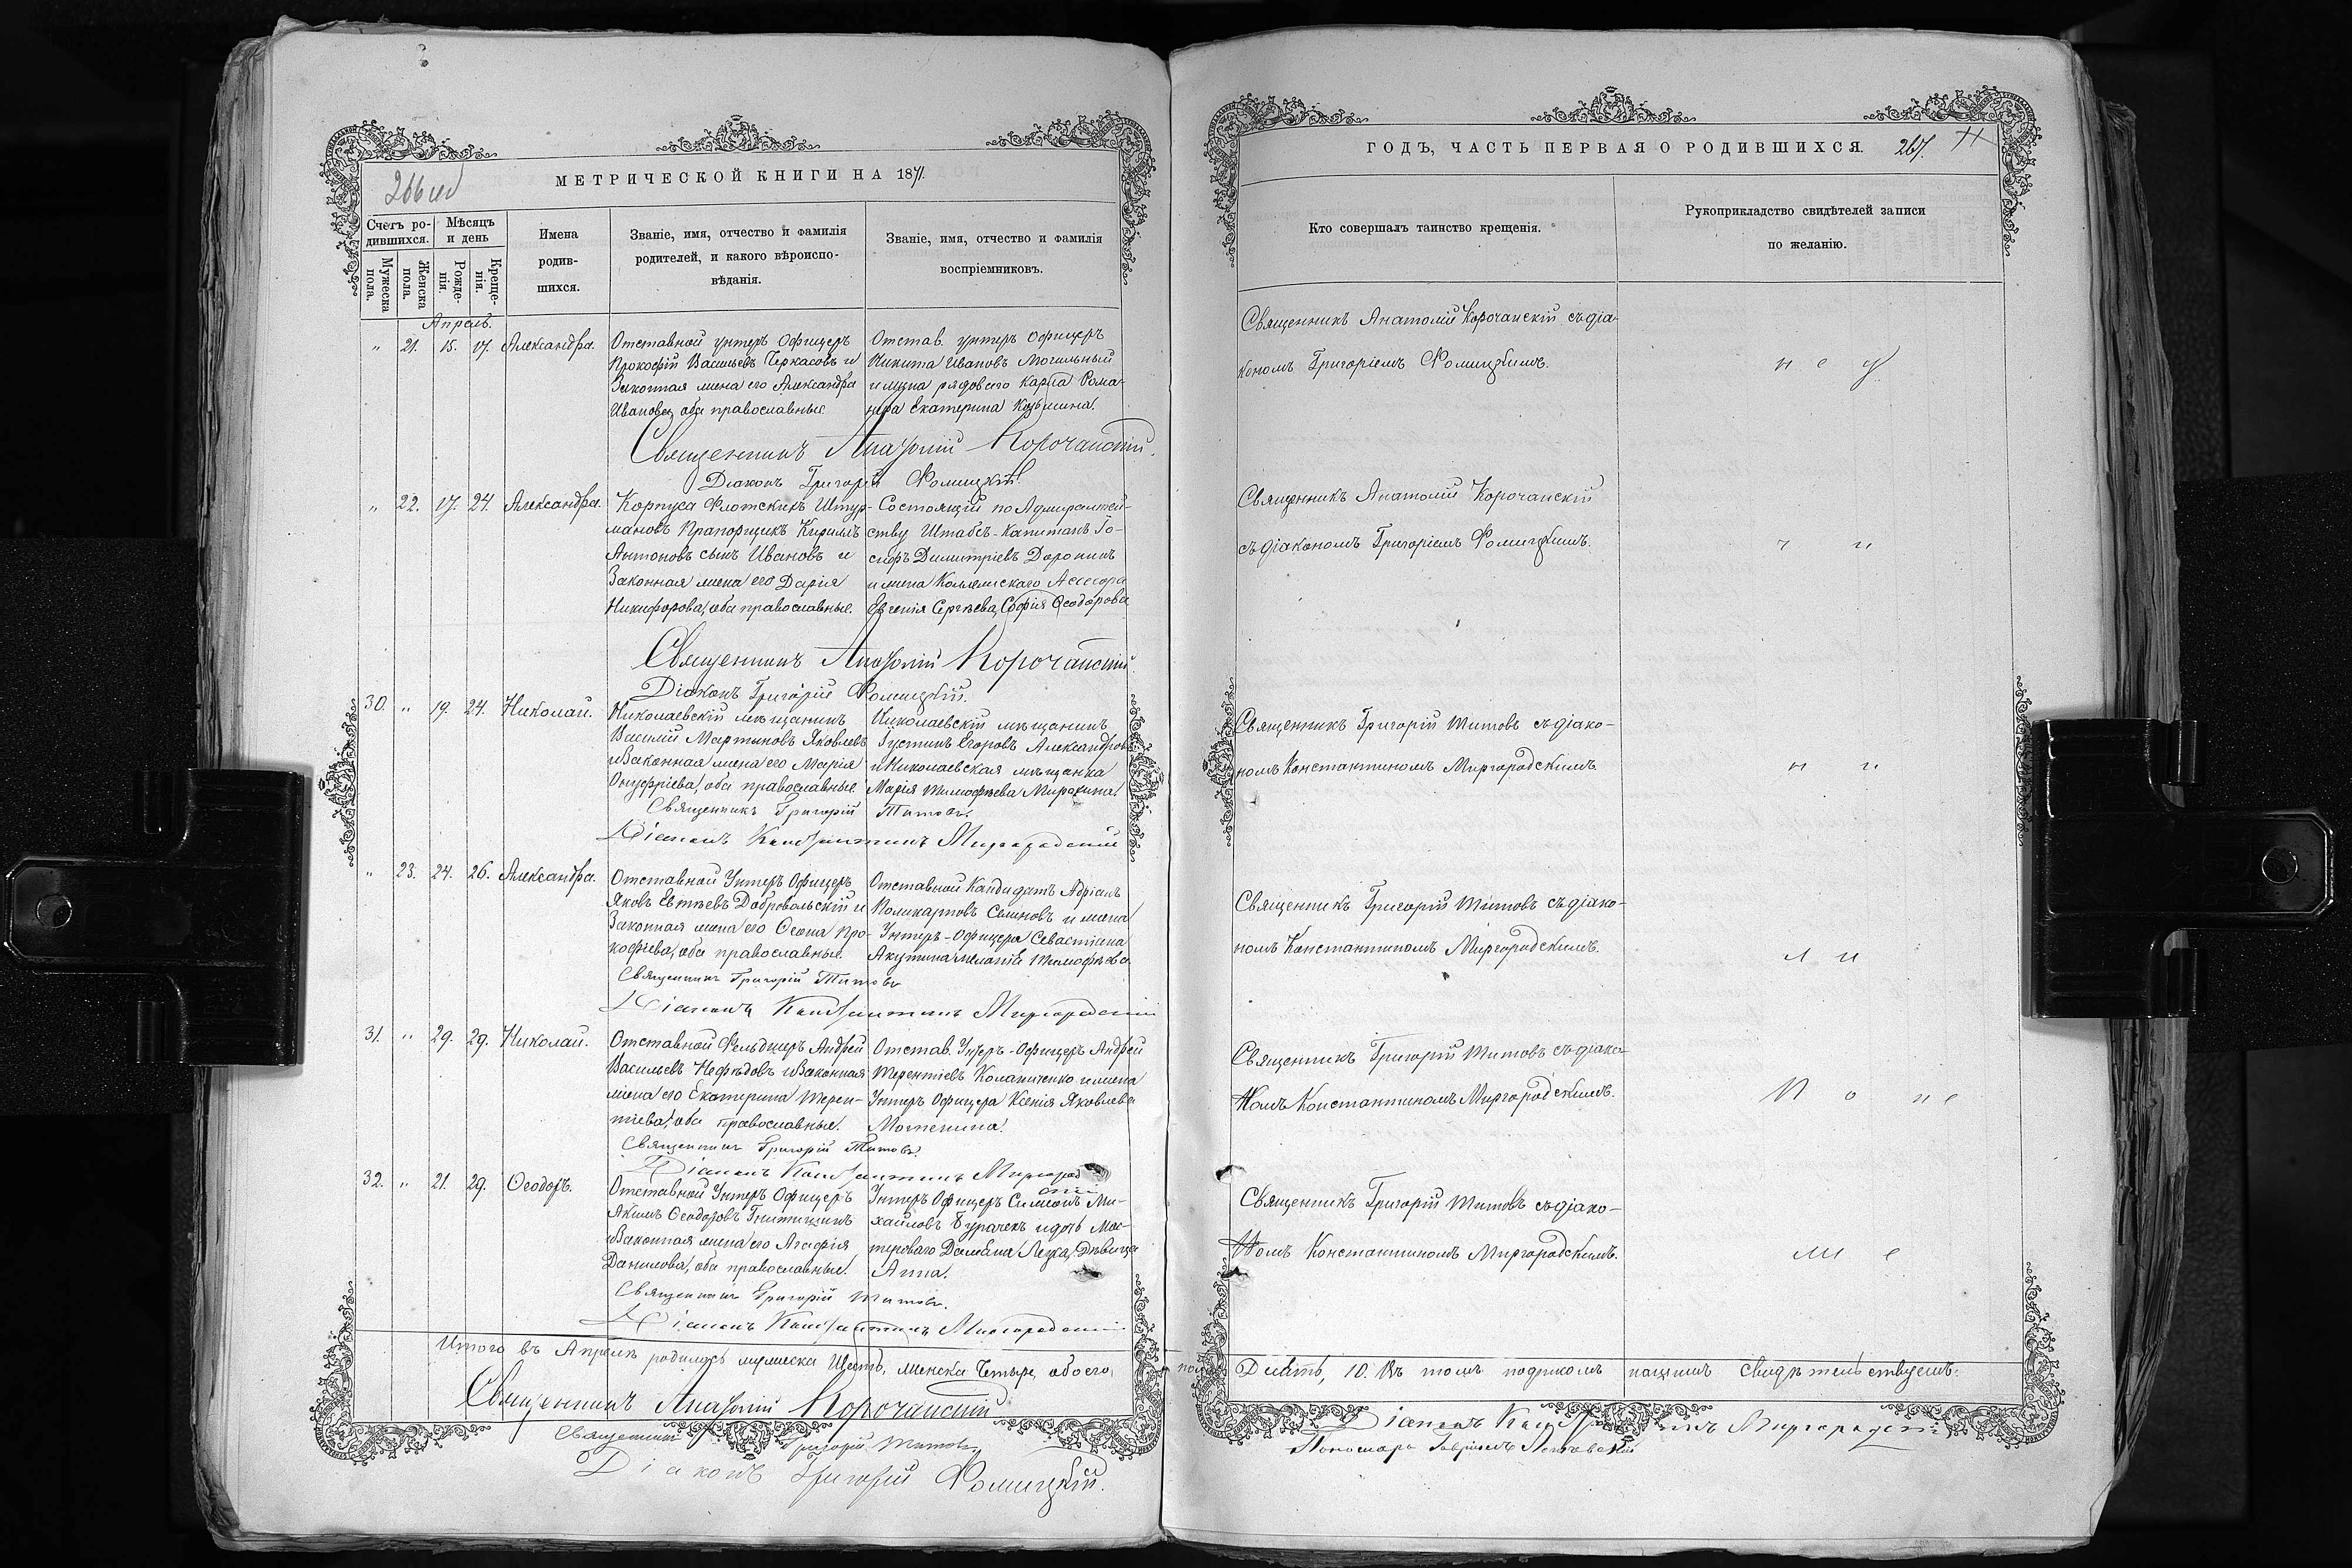 266 об
МЕТРИЧЕСКОЙ КНИГИ НА 1871.
Счетъ ро-
дившихся.
Мѣсяцъ
и день
Мужеска
пола.
Женска
пола.
Рожде-
нія.
Креще-
нія.
Имена
родив-
шихся.
Званіе, имя, отчество и фамилія
родителей, и какого вѣроиспо-
вѣданія.
Званіе, имя, отчество и фамилія
воспріемниковъ.
Апрель.
" 21. 15. 17. Александра.
Отставной унтеръ Офицеръ
Прокофій Васильевъ Черкасовъ и
Законная жена его Александра
Иванова, оба православные.
Отстав. унтеръ Офицеръ
Никита Ивановъ Могильный
и жена рядоваго Карпа Рома-
Екатерина Кузьмина.
Священникъ Анатолій Корочанскій.
Діаконъ Григорій Фомицкій.
" 22. 17. 24. Александра.
Корпуса Флотскихъ Штур-
мановъ Прапорщикъ Кириллъ
Антоновъ сынъ Ивановъ и
Законная жена его Дарія
Никифорова, оба православные.
Состоящій по Адмиралтей-
ству Штабсъ-Капитанъ Іо-
сифъ Димитріевъ Доронинъ
и жена Коллежскаго Асесора
Евгенія Сергѣева, Софія Ѳеодорова
Священникъ Анатолій Корочанскій.
Діаконъ Григорій Фомицкій.
30. " 19. 24. Николай.
Николаевскій мѣщанинъ
Василій Мартиновъ Яковлевъ
и Законная жена его Марія
Онуфріева, оба православные
Николаевскій мѣщанинъ
Іустинъ Егоровъ Александровъ
и Николаевская мѣщанка
Марія Тимофѣева Миракина.
Священникъ Григорій Титовъ.
Діаконъ Константинъ Миргородскій
" 23. 24. 26. Александра.
Отставной Унтеръ Офицеръ
Яковъ Евтѣевъ Добровольскій и
Законная жена его Ѳеона Про-
кофьева, оба православные.
Отставной Кандидатъ Адріанъ
Поликарповъ Семновъ и жена
Унтеръ-Офицера Севастіана
Акутина Меланія Тимофѣева.
Священникъ Григорій Титовъ
Діаконъ Константинъ Миргородскій
31. " 29. 29. Николай.
Отставной Фельдшеръ Андрей
Васильевъ Нефѣдовъ и Законная
жена его Екатерина Терен-
тіева, оба православные.
Отстав. Унтеръ-Офицеръ Андрей
Терентіевъ Коланиченко и жена
Унтеръ Офицера Ксенія Яковлева
Мотенина.
Священникъ Григорій Титовъ.
Діаконъ Константинъ Миргород
скій
32. " 21. 29. Ѳеодоръ.
Отставной Унтеръ Офицеръ
Акимъ Ѳеодоровъ Гнитицинъ
и Законная жена его Агафія
Данилова, оба православные.
Унтеръ Офицеръ Симеонъ Ми-
хайловъ Бурачекъ и дочь Мас-
тероваго Дамьяна Лега, Дѣвица
Анна.
Священникъ Григорій Титовъ.
Діаконъ Константинъ Миргородскій
Итого въ Апрелѣ родилось мужеска Шесть, женска Четыре, обоего,
Священникъ Анатолій Корочанскій
Священникъ Григорій Титовъ
Діаконъ Григорій Фомицкій.
ГОДЪ, ЧАСТЬ ПЕРВАЯ О РОДИВШИХСЯ.
267.
Кто совершалъ таинство крещенія.
Рукоприкладство свидѣтелей записи
по желанію.
Священникъ Анатолій Корочанскій съ діа-
кономъ Григоріемъ Фомицкимъ.
Священникъ Анатолій Корочанскій
съ діакономъ Григоріемъ Фомицкимъ.
Священникъ Григорій Титовъ съ діако-
номъ Константиномъ Миргородскимъ
Священникъ Григорій Титовъ съ діако-
номъ Константиномъ Миргородскимъ.
Священникъ Григорій Титовъ съ діако-
номъ Константиномъ Миргородскимъ.
Священникъ Григорій Титовъ съ діако-
номъ Константиномъ Миргородскимъ.
пола Десять, 10. Въ томъ подписомъ нашимъ свидѣтельствуемъ:
Діаконъ Константинъ Миргородскій
Пономарь Гавріилъ